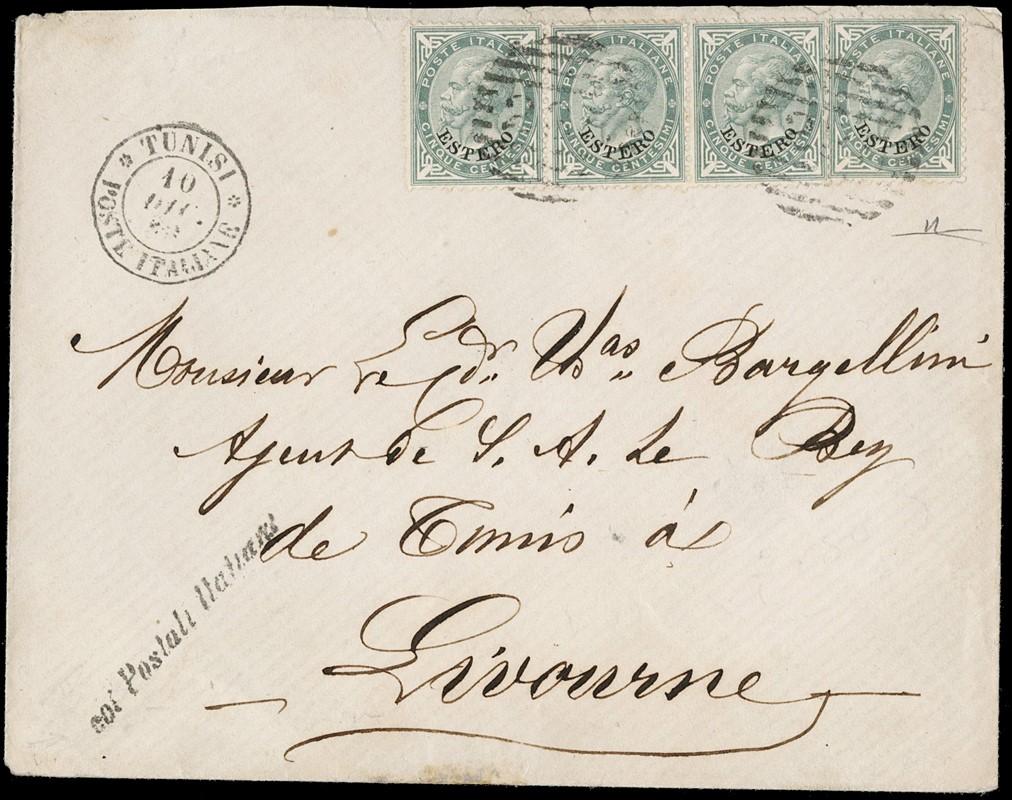 POSTE ITALIANE POSTE ITALIANE POSTE ITALIANE POSTE ITALIANE
ESTERO ESTERO ESTERO ESTERO
CINQUE CENTESIMI CINQUE CENTESIMI CINQUE CENTESIMI CINQUE CENTESIMI
TUNISI
10
DIC.
POSTE ITALIANE
Monsieur Le Cdr. Uas. Bargellini
Agent de S. A. Le Bey
de Tunis à
Livourne
coi Postali Italiani